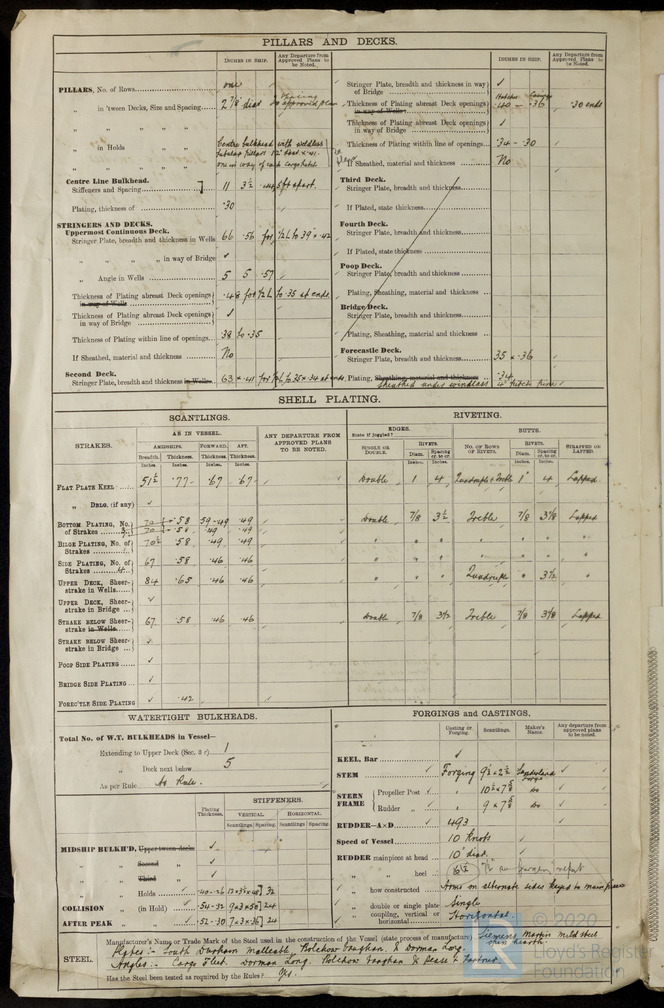 PILLARS AND DECKS.
INCHES IN SHIP.
Any Departure from Approved Plans to be Noted.
PILLARS, No. of Rows one
„ in 'tween Decks, Size and Spacing 2 7/8 diad spacing as approved plan
„ „ „ „
„ in Holds Centre bulkhead with weldless
tubular pillars
one in way of each cargo hatch
Centre Line Bulkhead.
Stiffeners and Spacing 11 3½ .44 5 ft apart.
Plating, thickness of .30
STRINGERS AND DECKS.
Uppermost Continuous Deck.
Stringer Plate, breadth and thickness in Wells 66 .56 for ½ L to 39 × .42
„ „ „ „ in way of Bridge ✓
„ Angle in Wells 5 5 .57
Thickness of Plating abreast Deck openings in way of Wells .48 for ½ L to .35 at ends
Thickness of Plating abreast Deck openings in way of Bridge
Thickness of Plating within line of openings 38 to .35
If Sheathed, material and thickness No
Second Deck.
Stringer Plate, breadth and thickness in Wells 63 × .41 for ½ L to 35 × .34 at ends
INCHES IN SHIP.
Any Departure from Approved Plans to be Noted.
Stringer Plate, breadth and thickness in way of Bridge
Thickness of Plating abreast Deck openings in way of Wells .40 – .36 .30 ends
Thickness of Plating abreast Deck openings in way of Bridge
Thickness of Plating within line of openings .34 - .30
If Sheathed, material and thickness No
Third Deck.
Stringer Plate, breadth and thickness
If Plated, state thickness
Fourth Deck.
Stringer Plate, breadth and thickness
If Plated, state thickness
Poop Deck.
Stringer Plate, breadth and thickness
Plating, Sheathing, material and thickness
Bridge Deck.
Stringer Plate, breadth and thickness
Plating, Sheathing, material and thickness
Forecastle Deck.
Stringer Plate, breadth and thickness 35 × .36
Plating, Sheathing, material and thickness .34
Sheathed under windlass 4" Pitch pine
SHELL PLATING.
SCANTLINGS.
RIVETING.
STRAKES.
AS IN VESSEL.
AMIDSHIPS. FORWARD. AFT.
Breadth. Thickness. Thickness. Thickness.
Inches. Inches. Inches. Inches.
ANY DEPARTURE FROM APPROVED PLANS TO BE NOTED.
EDGES.
State if joggled?
SINGLE OR DOUBLE.
RIVETS.
Diam. Spacing cr. to cr.
Inches. Inches.
BUTTS.
NO. OF ROWS OF RIVETS.
RIVETS.
Diam. Spacing cr. to cr.
Inches. Inches.
STRAPPED OR LAPPED.
FLAT PLATE KEEL 51½ .77 .67 .67 Double 1 4 Quadruple & Treble 1" 4 Lapped
„ DBLG. (if any) ✓
BOTTOM PLATING, No. of Strakes 3 70 .58 59-49 .49 Double 7/8 3½ Treble 7/8 3 1/8 Lapped
70 .58 .49 .49
BILGE PLATING, No. of Strakes 1 70½ .58 .49 .49 „ „ „ „ „ „ „
SIDE PLATING, No. of Strakes 4 67 .58 .46 .46 „ „ „ „ „ „ „
UPPER DECK, Sheerstrake in Wells 84 .65 .46 .46 „ „ „ Quadruple „ 3½ „
UPPER DECK, Sheerstrake in Bridge ✓
STRAKE BELOW Sheerstrake in Wells 67 .58 .46 .46 Double 7/8 3½ Treble 7/8 3 1/8 Lapped
STRAKE BELOW Sheerstrake in Bridge ✓
POOP SIDE PLATING ✓
BRIDGE SIDE PLATING ✓
FOREC'TLE SIDE PLATING .42
WATERTIGHT BULKHEADS.
Total No. of W.T. BULKHEADS in Vessel—
Extending to Upper Deck (Sec. 3 c) 1
„ Deck next below 5
As per Rule As Rule.
Plating Thickness.
STIFFENERS.
VERTICAL. HORIZONTAL.
Scantlings Spacing. Scantlings Spacing.
MIDSHIP BULKH'D, Upper tween decks ✓
„ „ Second „ ✓
„ „ Third „ ✓
„ „ Holds .40-.26 32
COLLISION „ (in Hold) .54-.32 24
AFTER PEAK „ „ .52-.30 24
FORGINGS and CASTINGS.
Casting or Forging. Scantlings. Maker's Name. Any departure from approved plans to be noted.
KEEL, Bar ✓
STEM Forging 9½ × 2½
STERN FRAME { Propeller Post „ 10½ × 7⅝ do
Rudder „ „ 9 × 7⅝ do
RUDDER—A×D 493
Speed of Vessel 10 Knots
RUDDER mainpiece at head 10" diad.
„ „ heel 6½
„ how constructed Arms on alternate sides keyed to main piece
„ double or single plate Single
„ coupling, vertical or horizontal Horizontal
STEEL.
Manufacturer's Name or Trade Mark of the Steel used in the construction of the Vessel (state process of manufacture) Siemens Martin mild steel
open hearth
Plates :- South Durham Malleable, Bolckow Vaughan, & Dorman Long
Angles :- Cargo Fleet, Dorman Long, Bolckow Vaughan & Pease & Partners
Has the Steel been tested as required by the Rules? Yes.
© 2020
Lloyd's Register
Foundation